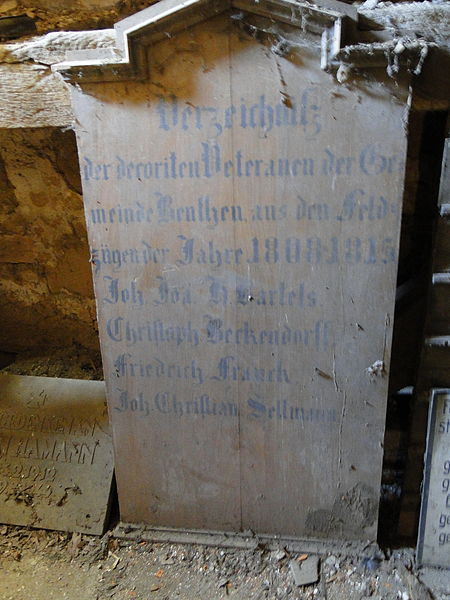 Verzeichniß
der decorirten Veteranen der Ge-
meinde Benthen aus den Feld-
zügen der Jahre 1808 1815
Joh. Joa. H Bartels
Christoph Beckendorff
Friedrich Franck
Joh. Christian Sellmann
HAMANN